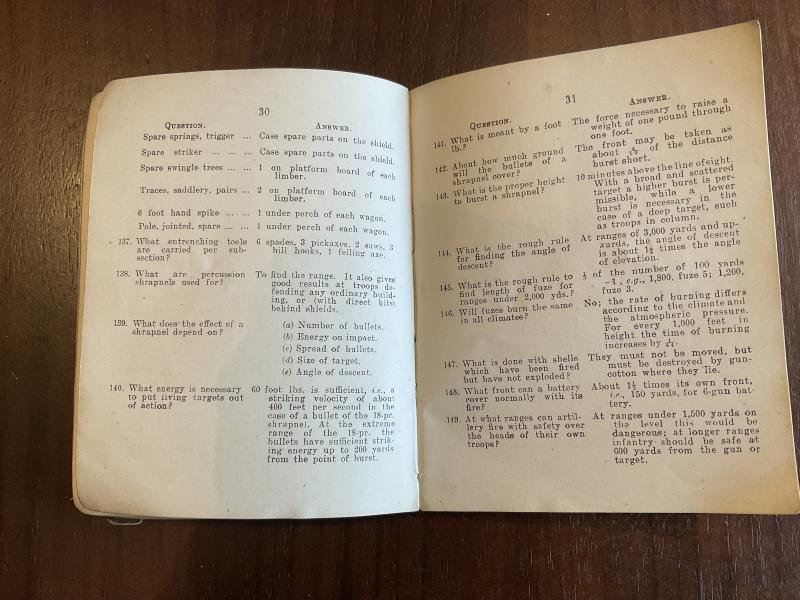 30
QUESTION. ANSWER.
Spare springs, trigger ... Case spare parts on the shield.
Spare striker ... ... ... Case spare parts on the shield.
Spare swingle trees ... ... 1 on platform board of each
limber.
Traces, saddlery, pairs ... 2 on platform board of each
limber.
6 foot hand spike ... ... 1 under perch of each wagon.
Pole, jointed, spare ... ... 1 under perch of each wagon.
137. What entrenching tools
are carried per sub-
section?
6 spades, 3 pickaxes, 2 saws, 3
bill hooks, 1 felling axe.
138. What are percussion
shrapnels used for?
To find the range. It also gives
good results at troops de-
fending any ordinary build-
ing, or (with direct hits)
behind shields.
139. What does the effect of a
shrapnel depend on?
(a) Number of bullets.
(b) Energy on impact.
(c) Spread of bullets.
(d) Size of target.
(e) Angle of descent.
140. What energy is necessary
to put living targets out
of action?
60 foot lbs. is sufficient, i.e., a
striking velocity of about
400 feet per second in the
case of a bullet of the 18-pr.
shrapnel. At the extreme
range of the 18-pr. the
bullets have sufficient strik-
ing energy up to 200 yards
from the point of burst.
31
QUESTION. ANSWER.
141. What is meant by a foot
lb.?
The force necessary to raise a
weight of one pound through
one foot.
142. About how much ground
will the bullets of a
shrapnel cover?
The front may be taken as
about of the distance
burst short.
143. What is the proper height
to burst a shrapnel?
10 minutes above the line of sight.
With a broad and scattered
target a higher burst is per-
missible, while a lower
burst is necessary in the
case of a deep target, such
as troops in column.
144. What is the rough rule
for finding the angle of
descent?
At ranges of 3,000 yards and up-
wards, the angle of descent
is about times the angle
of elevation.
145. What is the rough rule to
find length of fuze for
ranges under 2,000 yds.?
of the number of 100 yards
e.g., 1,800, fuze 5; 1,200,
fuze 3.
146. Will fuzes burn the same
in all climates?
No; the rate of burning differs
according to the climate and
the atmospheric pressure.
For every 1,000 feet in
height the time of burning
increases by
147. What is done with shells
which have been fired
but have not exploded?
They must not be moved, but
must be destroyed by gun-
cotton where they lie.
148. What front can a battery
cover normally with its
fire?
About 1½ times its own front,
i.e., 150 yards, for 6-gun bat-
tery.
149. At what ranges can artil-
lery fire with safety over
the heads of their own
troops?
At ranges under 1,500 yards on
the level this would be
dangerous; at longer ranges
infantry should be safe at
600 yards from the gun or
target.